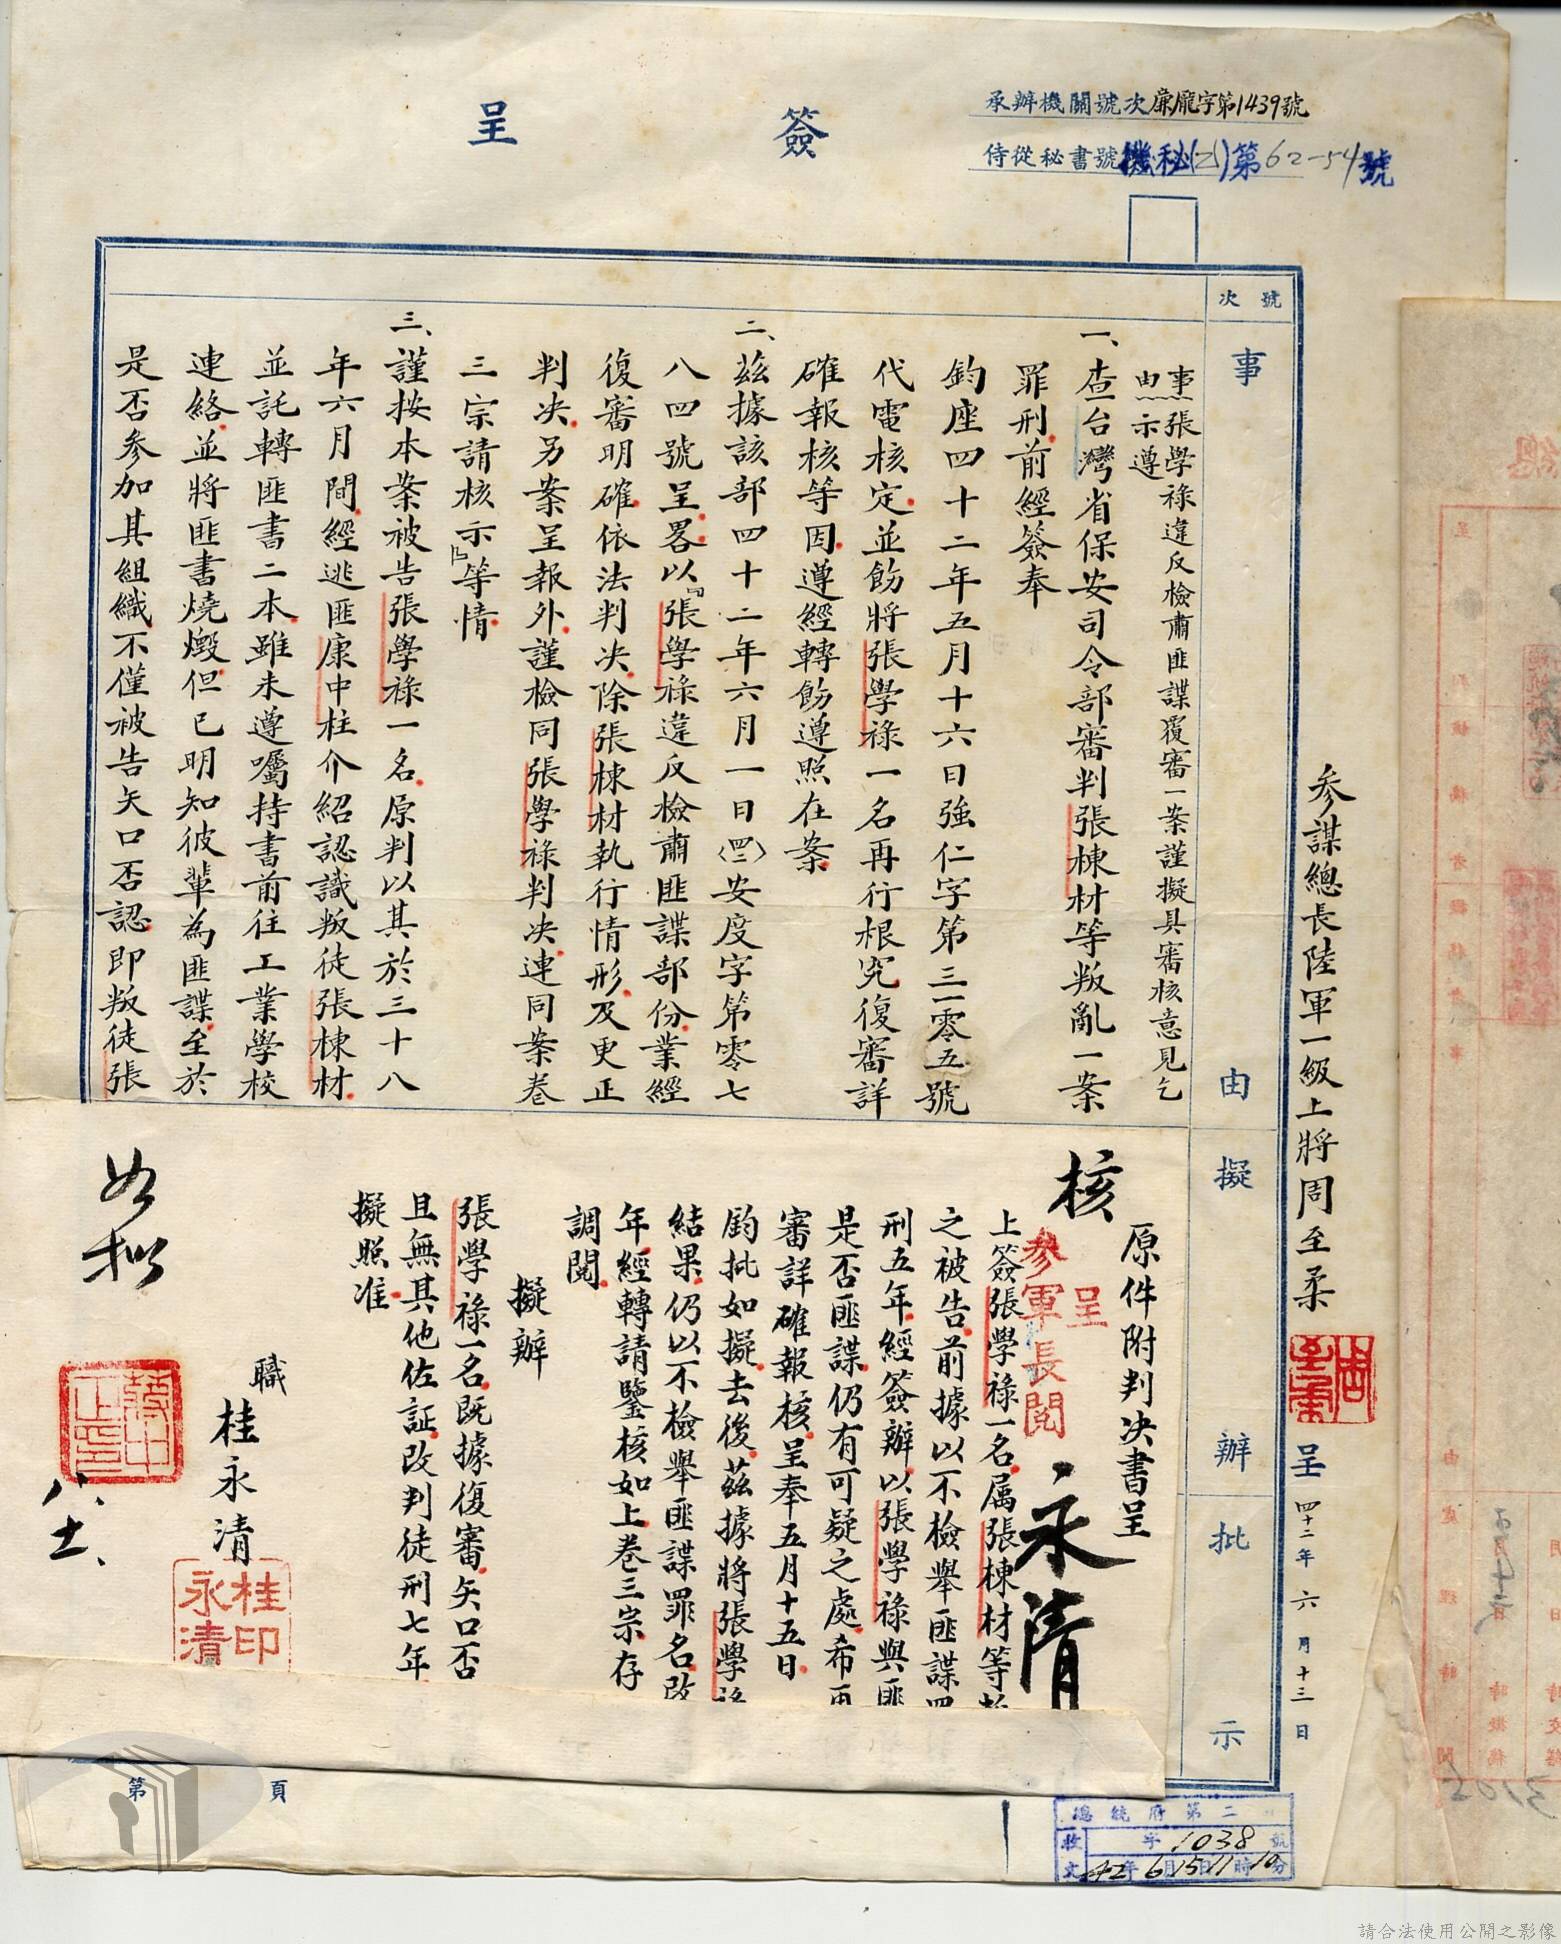 簽呈
承辦機關號次廉龐字第1439號
侍從秘書號機秘(乙)第62-54號
號次
事由
擬辦
批示
事由：張學祿違反檢肅匪諜覆審一案謹擬具審核意見乞
示遵
一、查台灣省保安司令部審判張棟材等叛亂一案
罪刑前經簽奉
鈞座四十二年五月十六日強仁字第三一零五號
代電核定並飭將張學祿一名再行根究復審詳
確報核等因遵經轉飭遵照在案
二、茲據該部四十二年六月一日(四二)安度字第零七
八四號呈畧以『張學祿違反檢肅匪諜部份業經
復審明確依法判決除張棟材執行情形及更正
判決另案呈報外謹檢同張學祿判決連同案卷
三宗請核示』等情
三、謹按本案被告張學祿一名原判以其於三十八
年六月間經逃匪康中柱介紹認識叛徒張棟材
並託轉匪書二本雖未遵囑持書前往工業學校
連絡並將匪書燒燬但已明知彼輩為匪諜至於
是否參加其組織不僅被告矢口否認即叛徒張
參謀總長陸軍一級上將周至柔
呈
四十二年六月十三日
核
原件附判決書呈
呈
參軍長閱
永清
上簽張學祿一名屬張棟材等
之被告前據以不檢舉匪諜罪
刑五年經簽辦以張學祿與匪
是否匪諜仍有可疑之處希再
審詳確報核呈奉五月十五日
鈞批如擬去後茲據將張學祿
結果仍以不檢舉匪諜罪名改
年經轉請鑒核如上卷三宗存
調閱
擬辦
張學祿一名既據復審矢口否
且無其他佐証改判徒刑七年
擬照准
職
桂永清
桂永清印
如擬
蔣中正印
八、十一、
第 頁
總統府第二
收文
字1038號
42年6月15日11時10分
請合法使用公開之影像